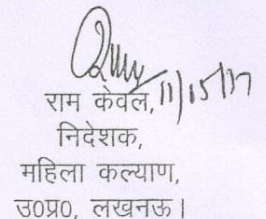 राम केवल,
निदेशक,
महिला कल्याण,
उ०प्र०, लखनऊ।